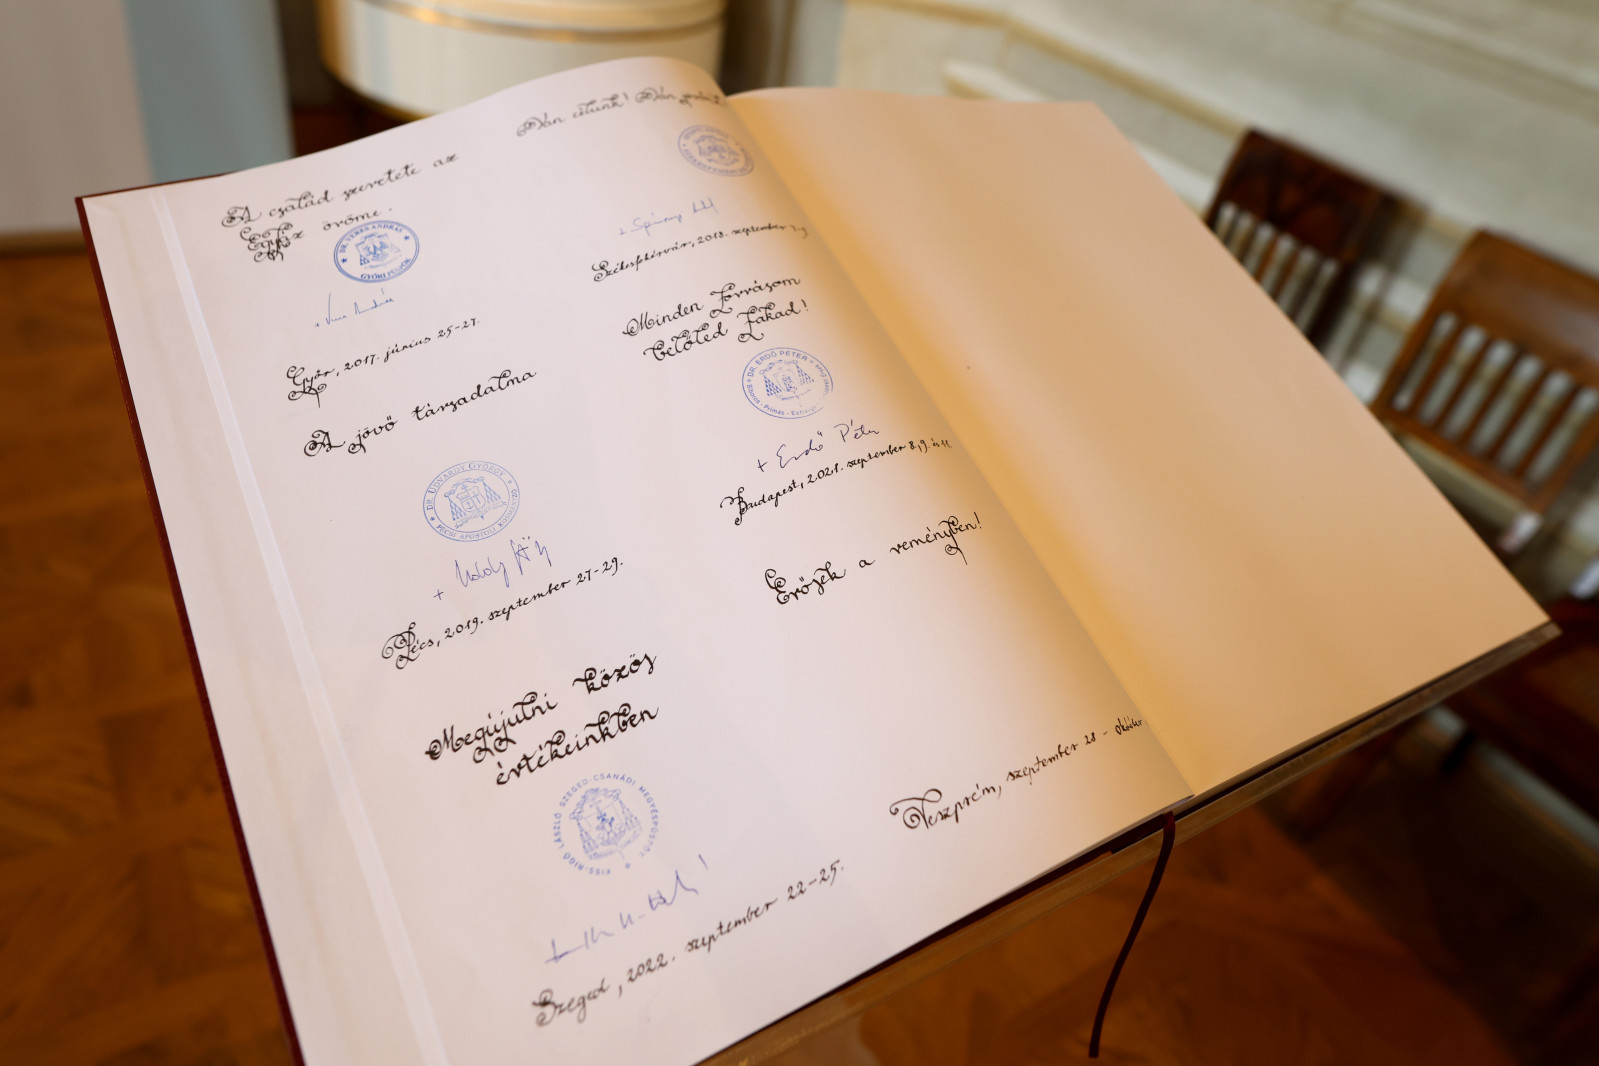 A család szeretete az
Egyház öröme.
DR. VERES ANDRÁS
GYŐRI PÜSPÖK
Győr, 2017. június 25-27.
A jövő társadalma
DR. UDVARDY GYÖRGY
PÉCSI APOSTOLI KORMÁNYZÓ
Pécs, 2019. szeptember 27-29.
Megújulni közös
értékeinkben
KISS-RIGÓ LÁSZLÓ SZEGED-CSANÁDI MEGYÉSPÜSPÖK
Szeged, 2022. szeptember 22-25.
Van célunk! Van
+ Spányi
Székesfehérvár, 2018. szeptember
Minden forrásom
belőled fakad!
DR. ERDŐ PÉTER
Bíboros - Prímás -
+ Erdő Péter
Budapest, 2021. szeptember 8, 9. és 11.
Erősek a reményben!
Veszprém, szeptember 28 -